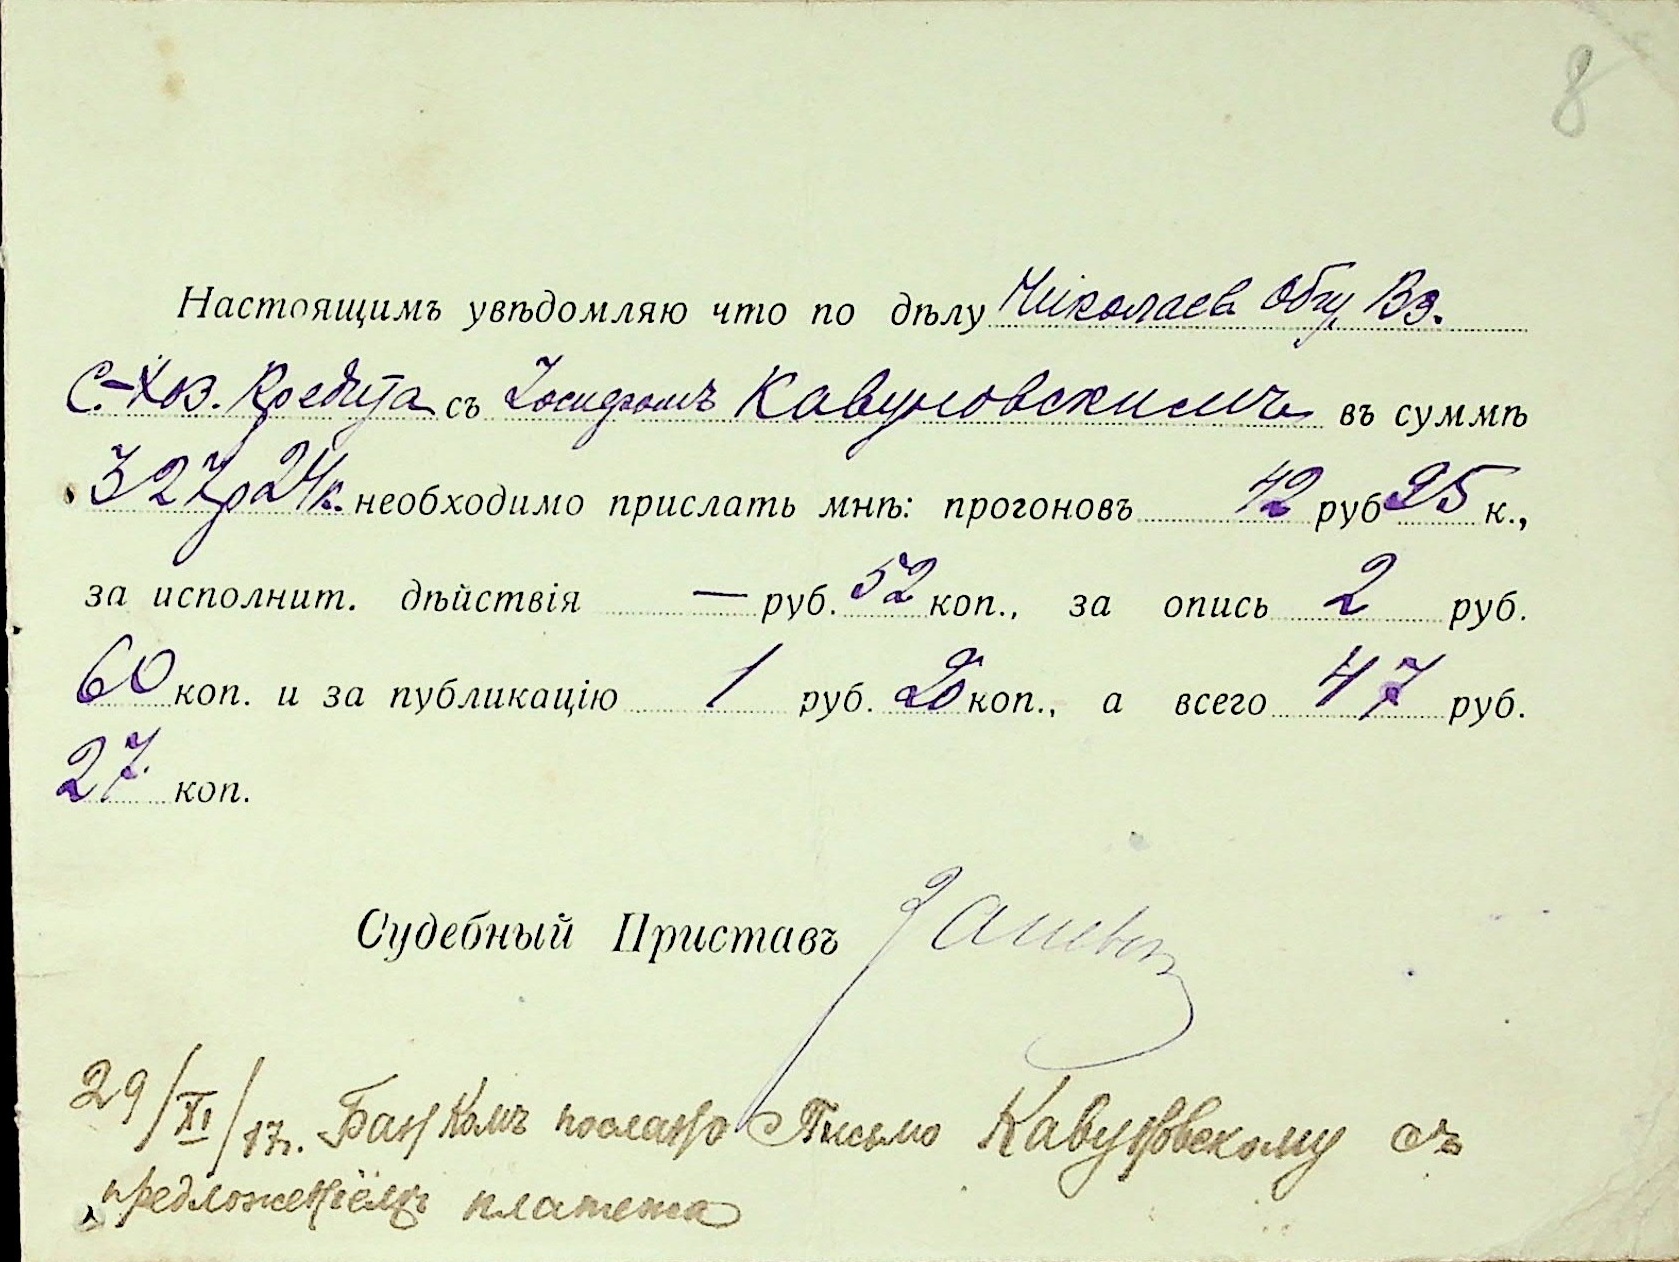 8
Настоящимъ увѣдомляю что по дѣлу Николаев Общ Вз.
С.-Хоз. Кредита съ Іосифомъ Кавуновскимъ въ суммѣ
327р24к. необходимо прислать мнѣ: прогоновъ 42 руб 95 к.,
за исполнит. дѣйствія — руб. 52 коп., за опись 2 руб.
60 коп. и за публикацію 1 руб. 20 коп., а всего 47 руб.
27 коп.
Судебный Приставъ
29/XI/17г. Банкомъ послано Письмо Кавуновскому съ
предложеніемъ платежа